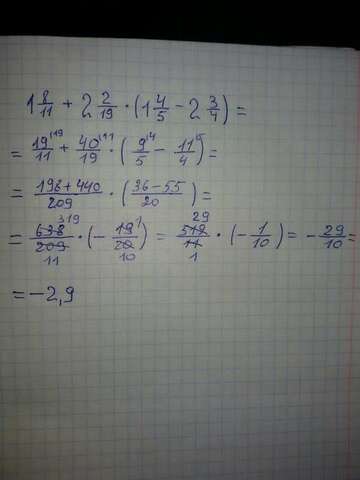 1 8/11 + 2 2/19 · (1 4/5 - 2 3/4) =
= 19/11 ^19 + 40/19 ^11 · (9/5 ^4 - 11/4 ^5) =
= 198+440/209 · (36-55/20) =
= 638/209 319 11 · (- 19/20 1 10) = 319/11 29 1 · (- 1/10) = - 29/10 =
= -2,9